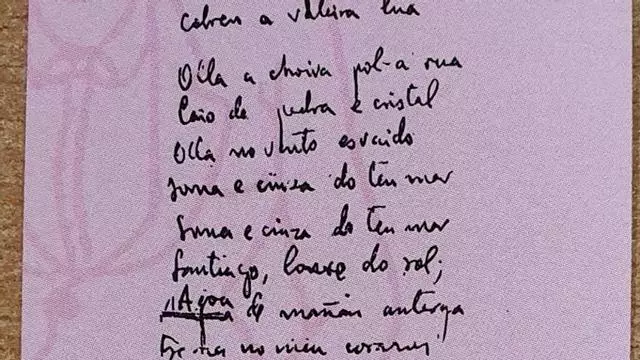 cobreu a valeira lúa
Olla a choiva pol-a rua
laio de pedra e cristal
Olla no vento esvaido
soma e cinza do teu mar
Soma e cinza do teu mar
Santiago, lonxe do sol;
Agoa da mañán anterga
no meu corazon